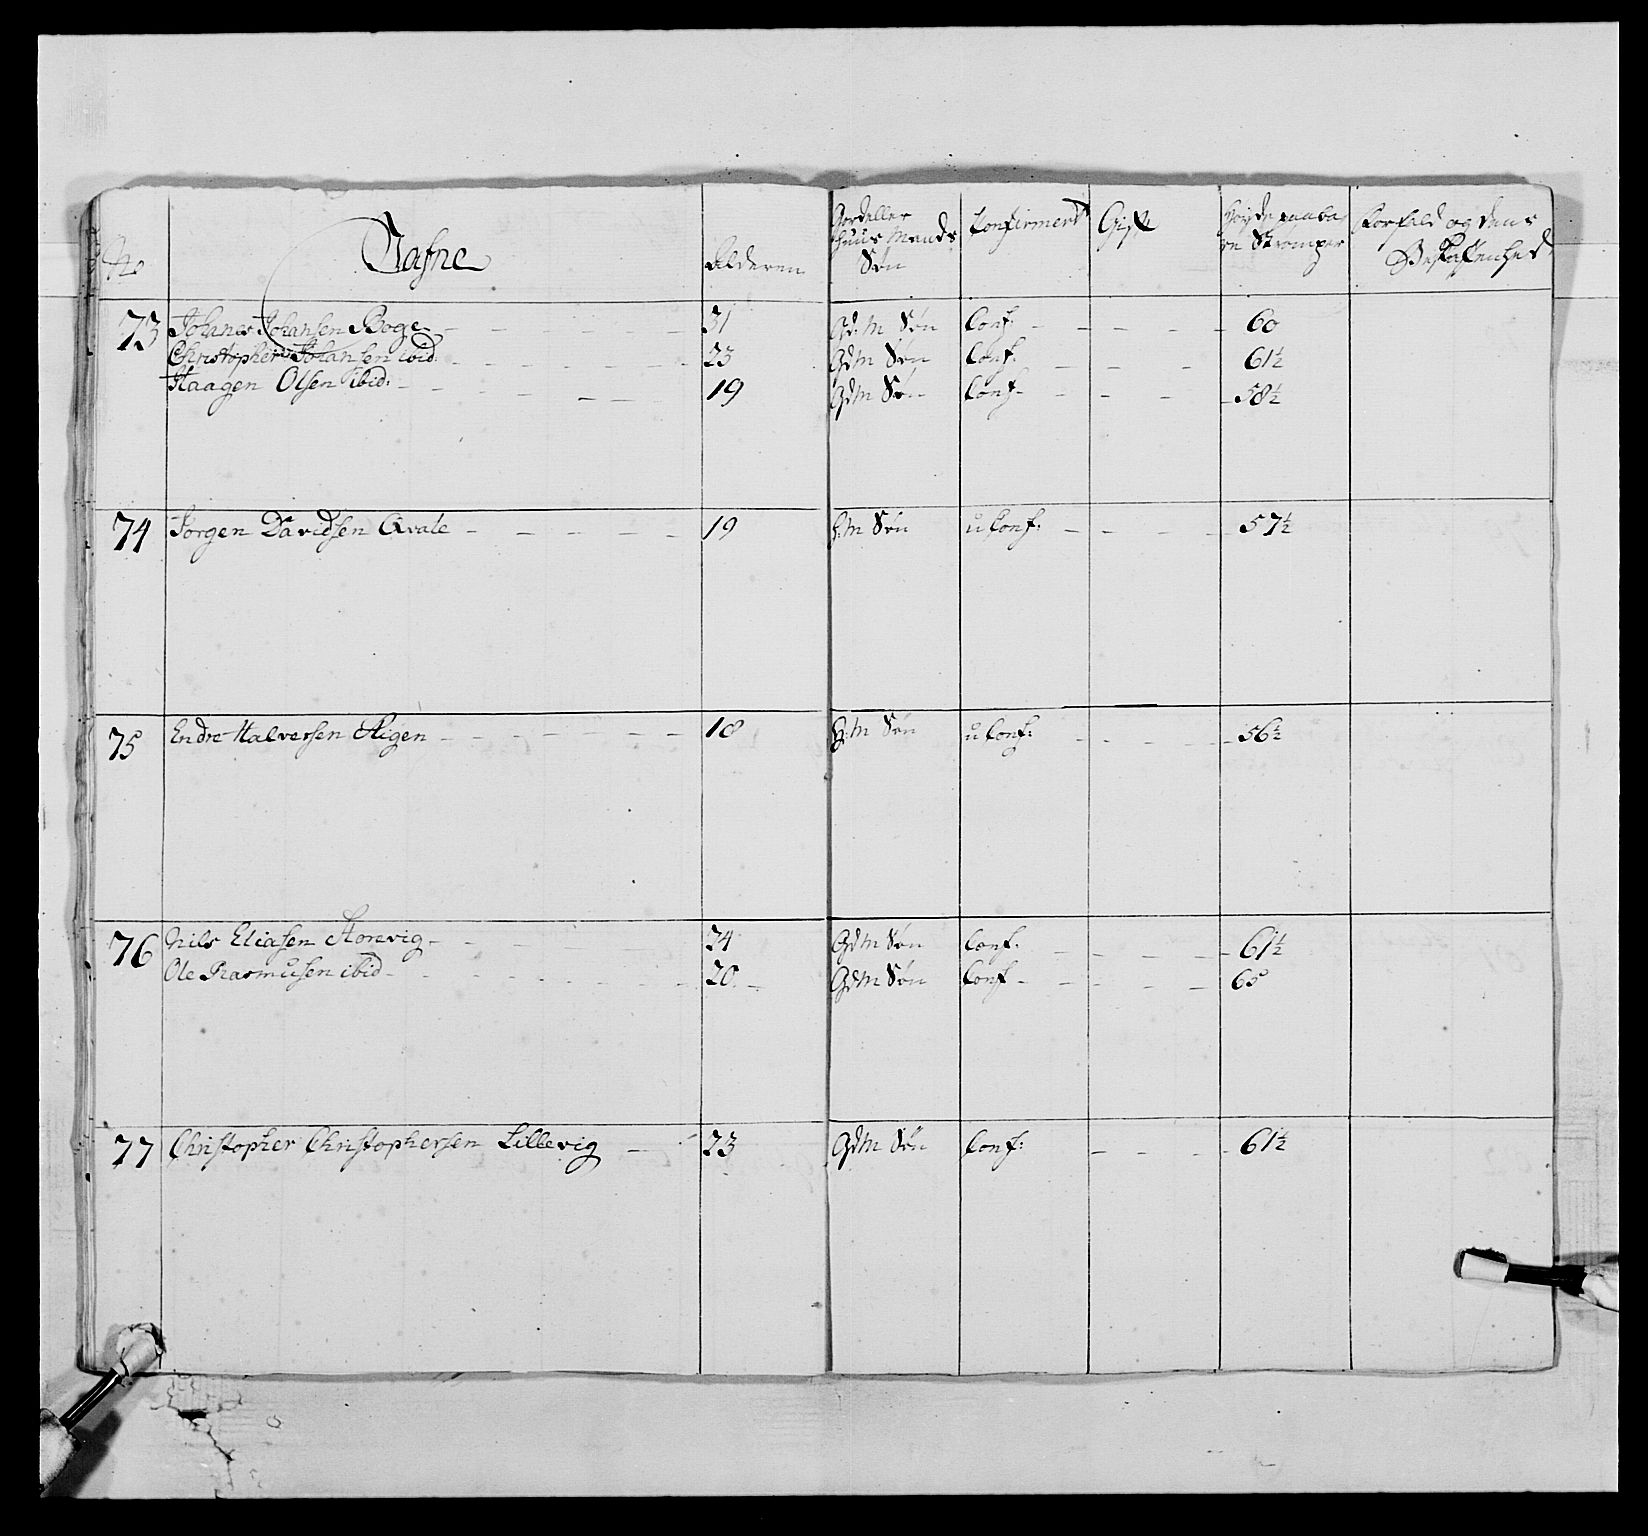 No
Nafne
Alderen
Gord eller Huus Mands Søn
Confirmert
Gift
Høyde paa ba re Strømper
Forfald og dens Beskaffenhed
73 Johanes Johansen Boge - - - 31 Gd: M Søn Conf: - - - - 60
Christopher Johansen ibid: - - - 23 GdM Søn Conf: - - - 61½
Haagen Olsen ibid: - - - 19 GdM Søn Conf - - - 58½
74 Jorgen Davidsen Qvale - - - 19 H:M Søn u Conf: - - - 57½
75 Endre Halversen Rigen - - - 18 H:M Søn u Conf: - - - 56½
76 Nils Eliasen Storevig - - - 24 GdM Søn Conf: - - - 61½
Ole Rasmusen ibid - - - 20 GdM Søn Conf - - - 65
77 Christopher Christophersen Lillevig - - 23 GdM Søn Conf: - - - 61½